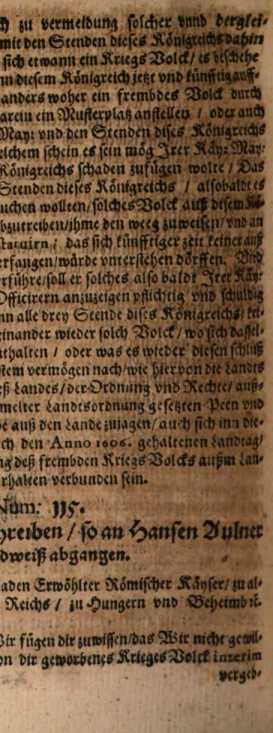 zu vermeidung solcher vnnd derglei-
mit den Stenden dieses Königreichs dahin
sich etwann ein Kriegs Volck / es beschehe
nn diesem Königreich jetzt vnd künfftig auff-
anders woher ein frembdes Volck durch
darein ein Musterplatz anstellen / oder auch
May: vnd den Stenden dises Königreichs
elchem schein es sein mög Irer Käy: May:
Königreichs schaden zufügen wolte / Das
Stenden dieses Königreichs / alsobaldt es
suchen wollten / solches Volck auß disem Kö-
bzutreiben / ihme den weeg zuweisen / vnd an
das sich künfftiger zeit keiner auß
erfangen / würde vnterstehen dörffen. Vnd
rführe / soll er solches also baldt Irer Käy:
Officirern anzuzeigen pflichtig vnd schuldig
nn alle drey Stende dises Königreichs / kei-
einander wieder solch Volck / wo sich dassel-
nthalten / oder was es wieder diesen schluß
stem vermögen nach / wie hiervon die Landts
eß Landes / der Ordnung vnd Rechte / auß-
melter Landtsordnung gesetzten Peen vnd
e auß den Lande zujagen / auch sich inn die-
ch den Anno 1606. gehaltenen Landtag /
ng deß frembden Kriegs Volcks außm Lan-
rhalten verbunden sein.
Num: 115.
hreiben / so an Hansen Aulner
dweiß abgangen.
aden Erwöhlter Römischer Käyser / zu al-
Reichs / zu Hungern vnd Beheimb ꝛc.
Wir fügen dir zuwissen / das Wir nicht gewil-
on dir geworbenes Krieges Volck interim
vergeb-